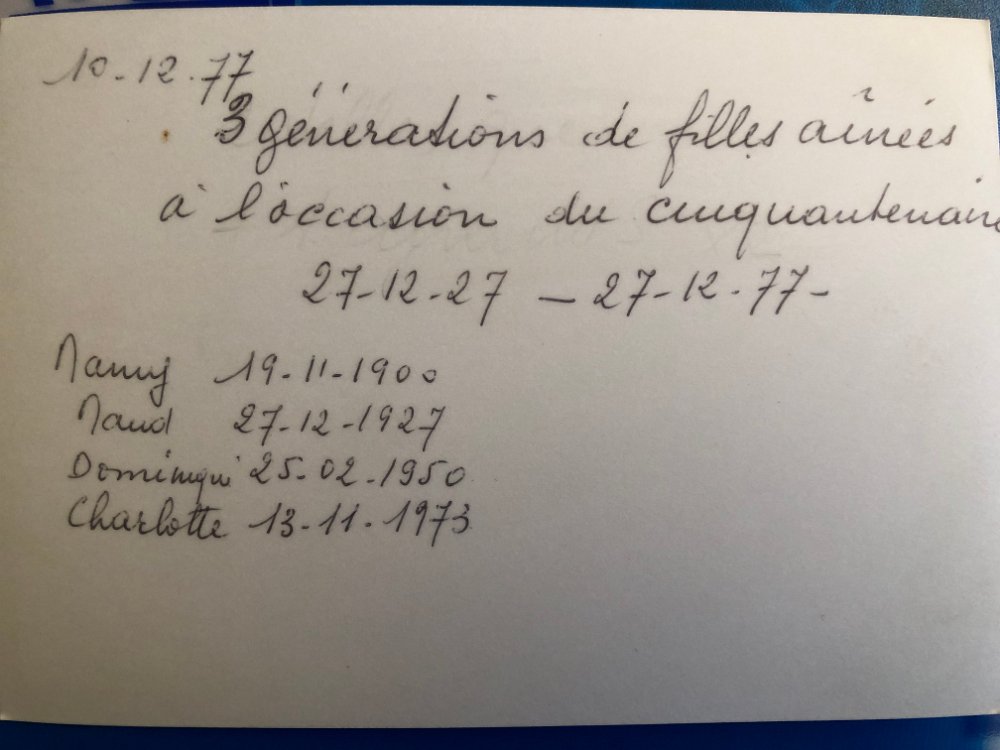 10-12-77
3 générations de filles aînées
à l'occasion du cinquantenaire
27-12-27 — 27-12-77-
Mamy 19-11-1900
Maud 27-12-1927
Dominique 25-02-1950
Charlotte 13-11-1973